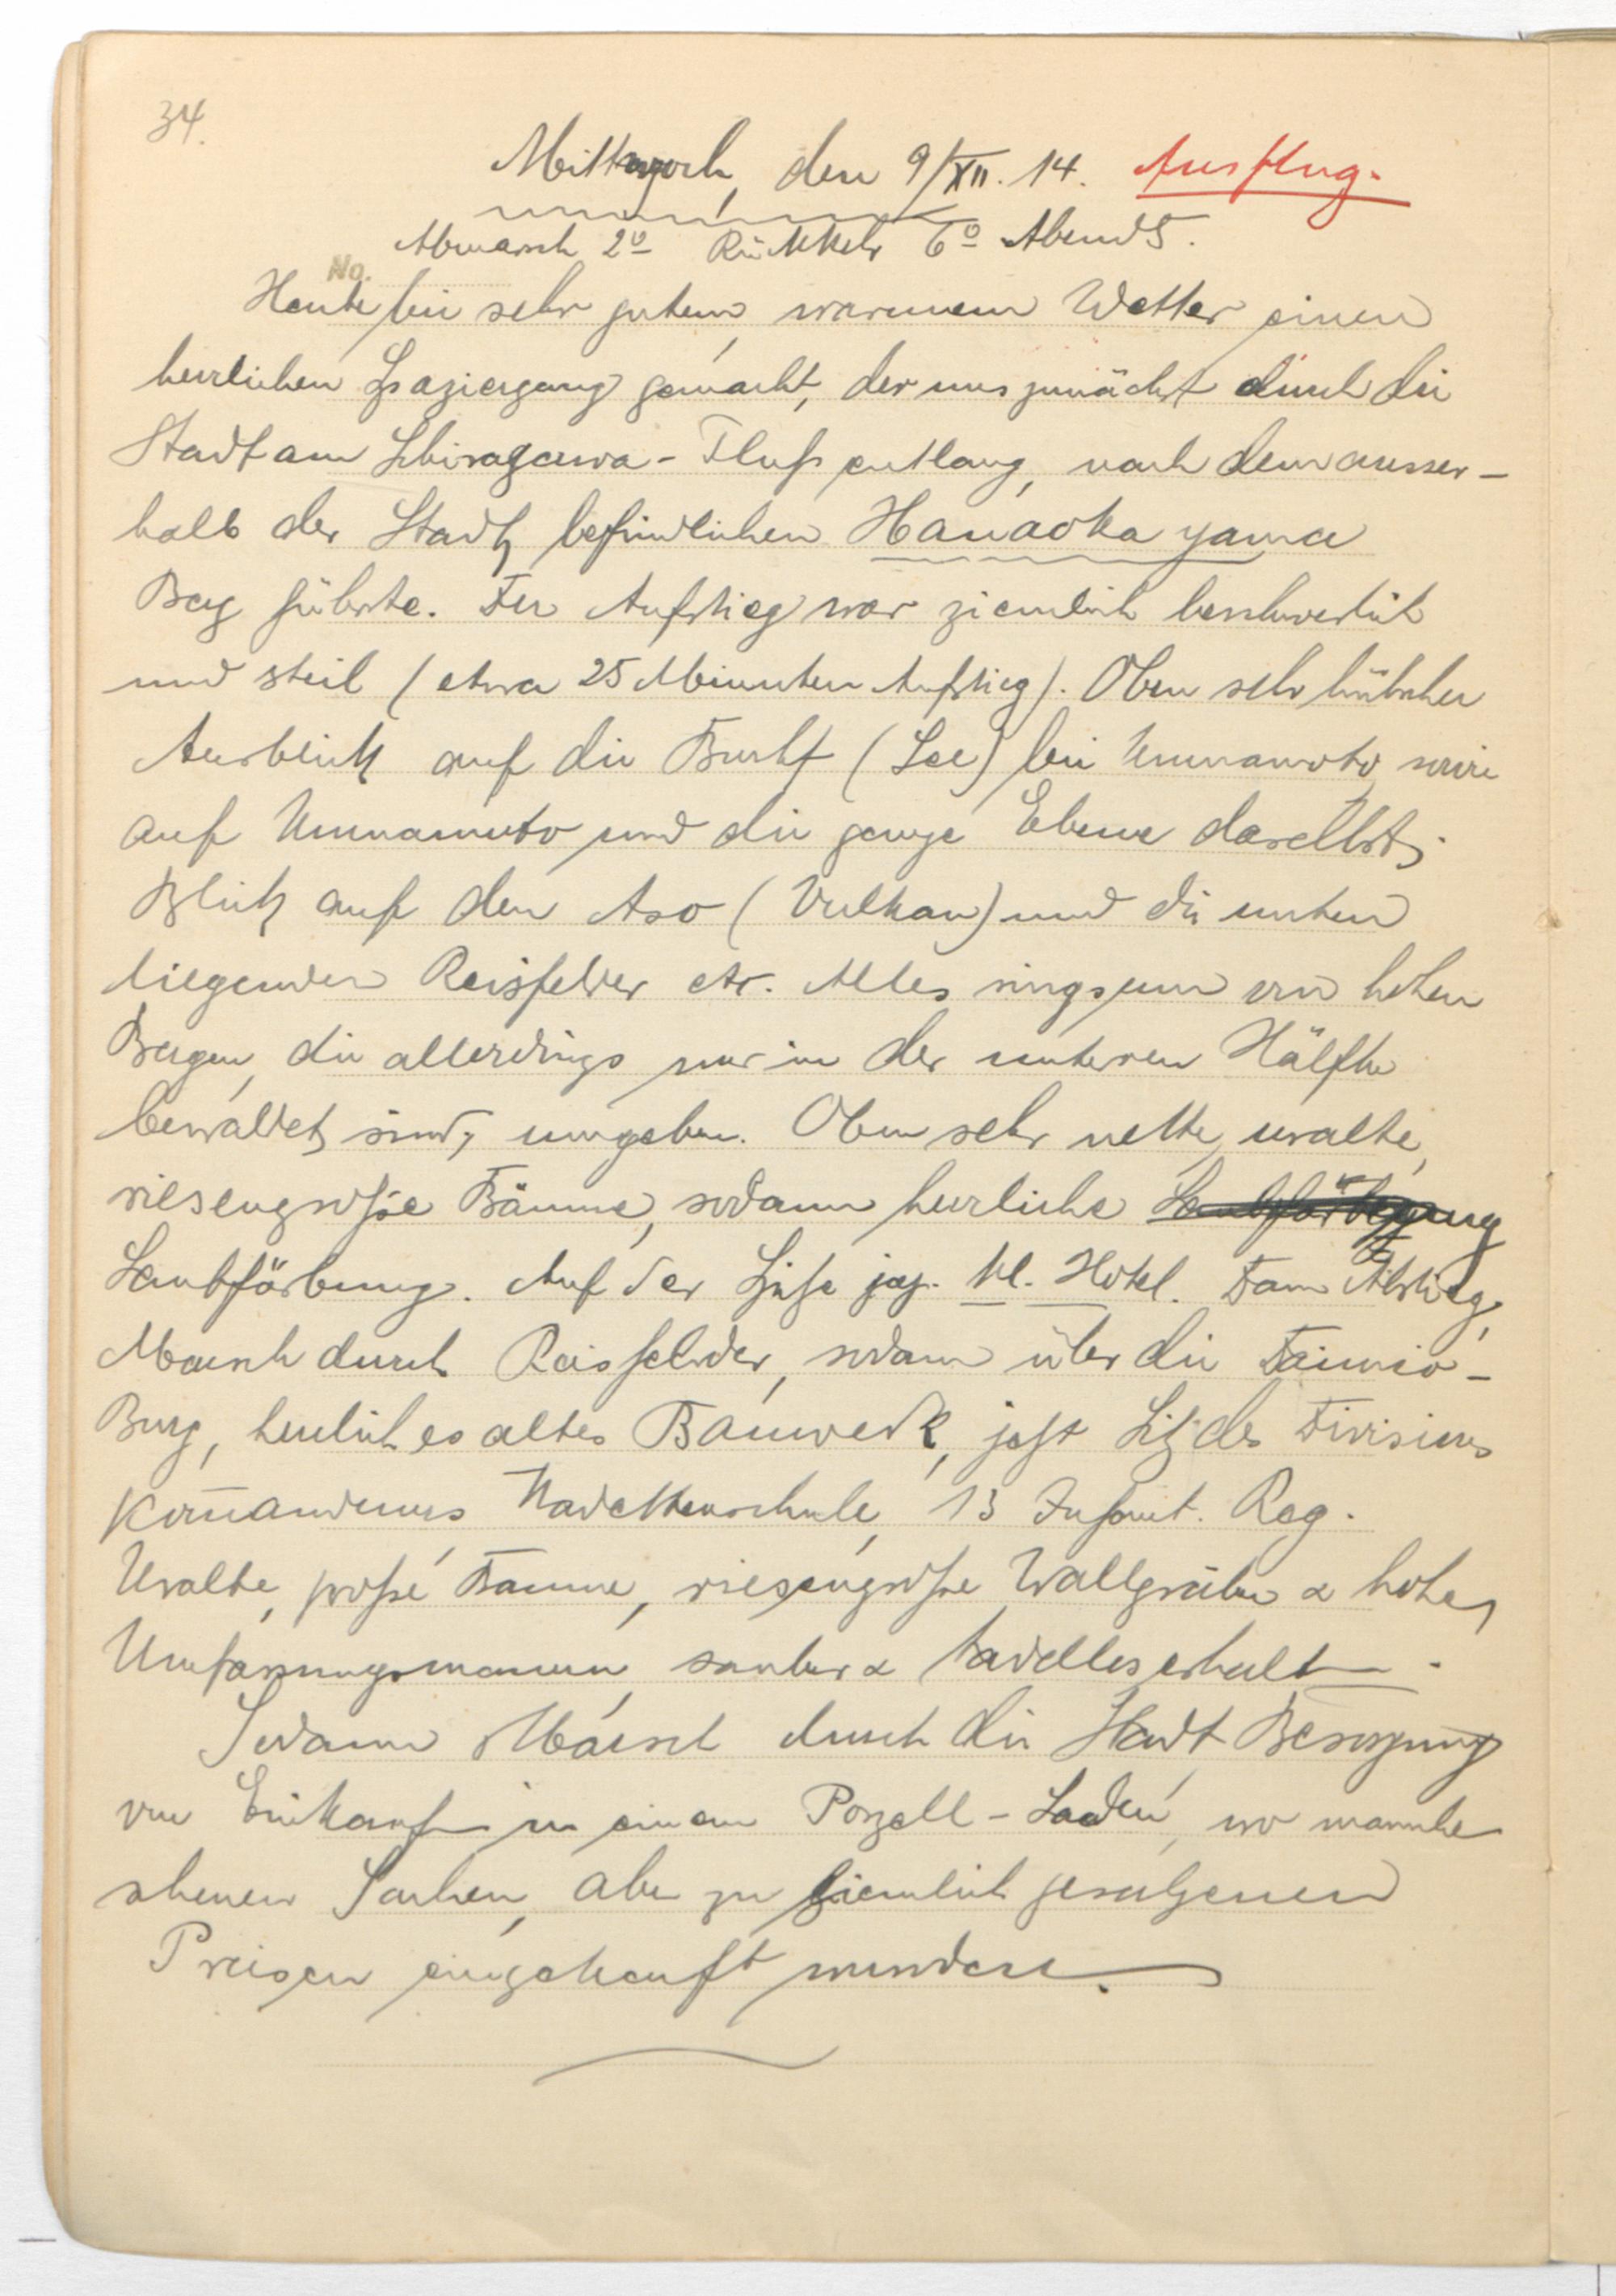 34.
Mittwoch, den 9/XII. 14. Ausflug.
Abmarsch 2º Rückkehr 6º Abends.
No.
Heute bei sehr gutem, warmem Wetter einen
herrlichen Spaziergang gemacht, der uns zunächst durch die
Stadt am Shiragawa-Fluß entlang, nach dem ausser-
halb der Stadt befindlichen Hanaoka yama
Berg führte. Der Aufstieg war ziemlich beschwerlich
und steil (etwa 25 Minuten Aufstieg). Oben sehr hübscher
Ausblick auf die Bucht (See) bei Kumamoto, sowie
auf Kumamoto und die ganze Ebene daselbst;
Blick auf den Aso (Vulkan) und die unten
liegenden Reisfelder etc. Alles ringsum von hohen
Bergen, die allerdings nur in der unteren Hälfte
bewaldet sind, umgeben. Oben sehr nette, uralte,
riesengroße Bäume, sodann herrliche Laubfärbung
Laubfärbung. Auf der Spitze jap. kl. Hotel. Dann Abstieg,
Marsch durch Reisfelder, sodann über die Daimio-
Burg, herrliches altes Bauwerk, jetzt Sitz des Divisions
Kommandeurs, Kadettenschule, 13 Infant. Reg.
Uralte, große Bäume, riesengroße Wallgräben & hohe,
Umfassungsmauern, sauber & tadellos erhalt
Sodann Marsch durch die Stadt, Besorgung
von Einkauf in einem Porzell-Laden, wo manche
schönen Sachen, aber zu ziemlich gesalzenen
Preisen eingekauft wurden.